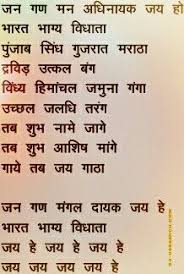 जन गण मन अधिनायक जय हो
भारत भाग्य विधाता
पुंजाब सिंध गुजरात मराठा
द्रविड़ उत्कल बंग
विंध्य हिमांचल जमुना गंगा
उच्छल जलधि तरंग
तब शुभ नामे जागे
तब शुभ आशिष मांगे
गाये तब जय गाठा
जन गण मंगल दायक जय हे
भारत भाग्य विधाता
जय हे जय हे जय हे
जय जय जय जय हे